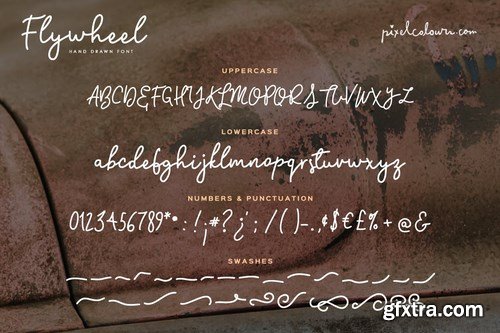 Flywheel
HAND DRAWN FONT
pixelcolourr.com
UPPERCASE
ABCDEFGHIJKLMNOPQRSTUVWXYZ
LOWERCASE
abcdefghijklmnopqrstuvwxyz
NUMBERS & PUNCTUATION
0123456789*•:!¡#?¿;/()-.,¢$€£%+@&
SWASHES
gfxtra.com